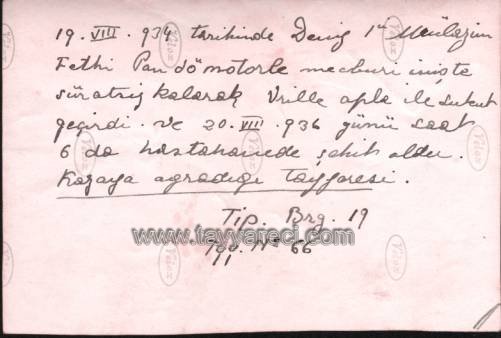 19. VIII. 934 tarihinde Deniz 1ci Mülazim
Fethi Pan dö motorle mecburi inişte
süratsiz kalarak Vrille apla ile sukut
geçirdi. ve 20. VIII. 936 günü saat
6 da hastahanede şehit oldu.
Kazaya uğradığı tayyaresi.
Tip. Brg. 19
www.tayyareci.com
No 66
Velox
Velox
Velox
Velox
Velox